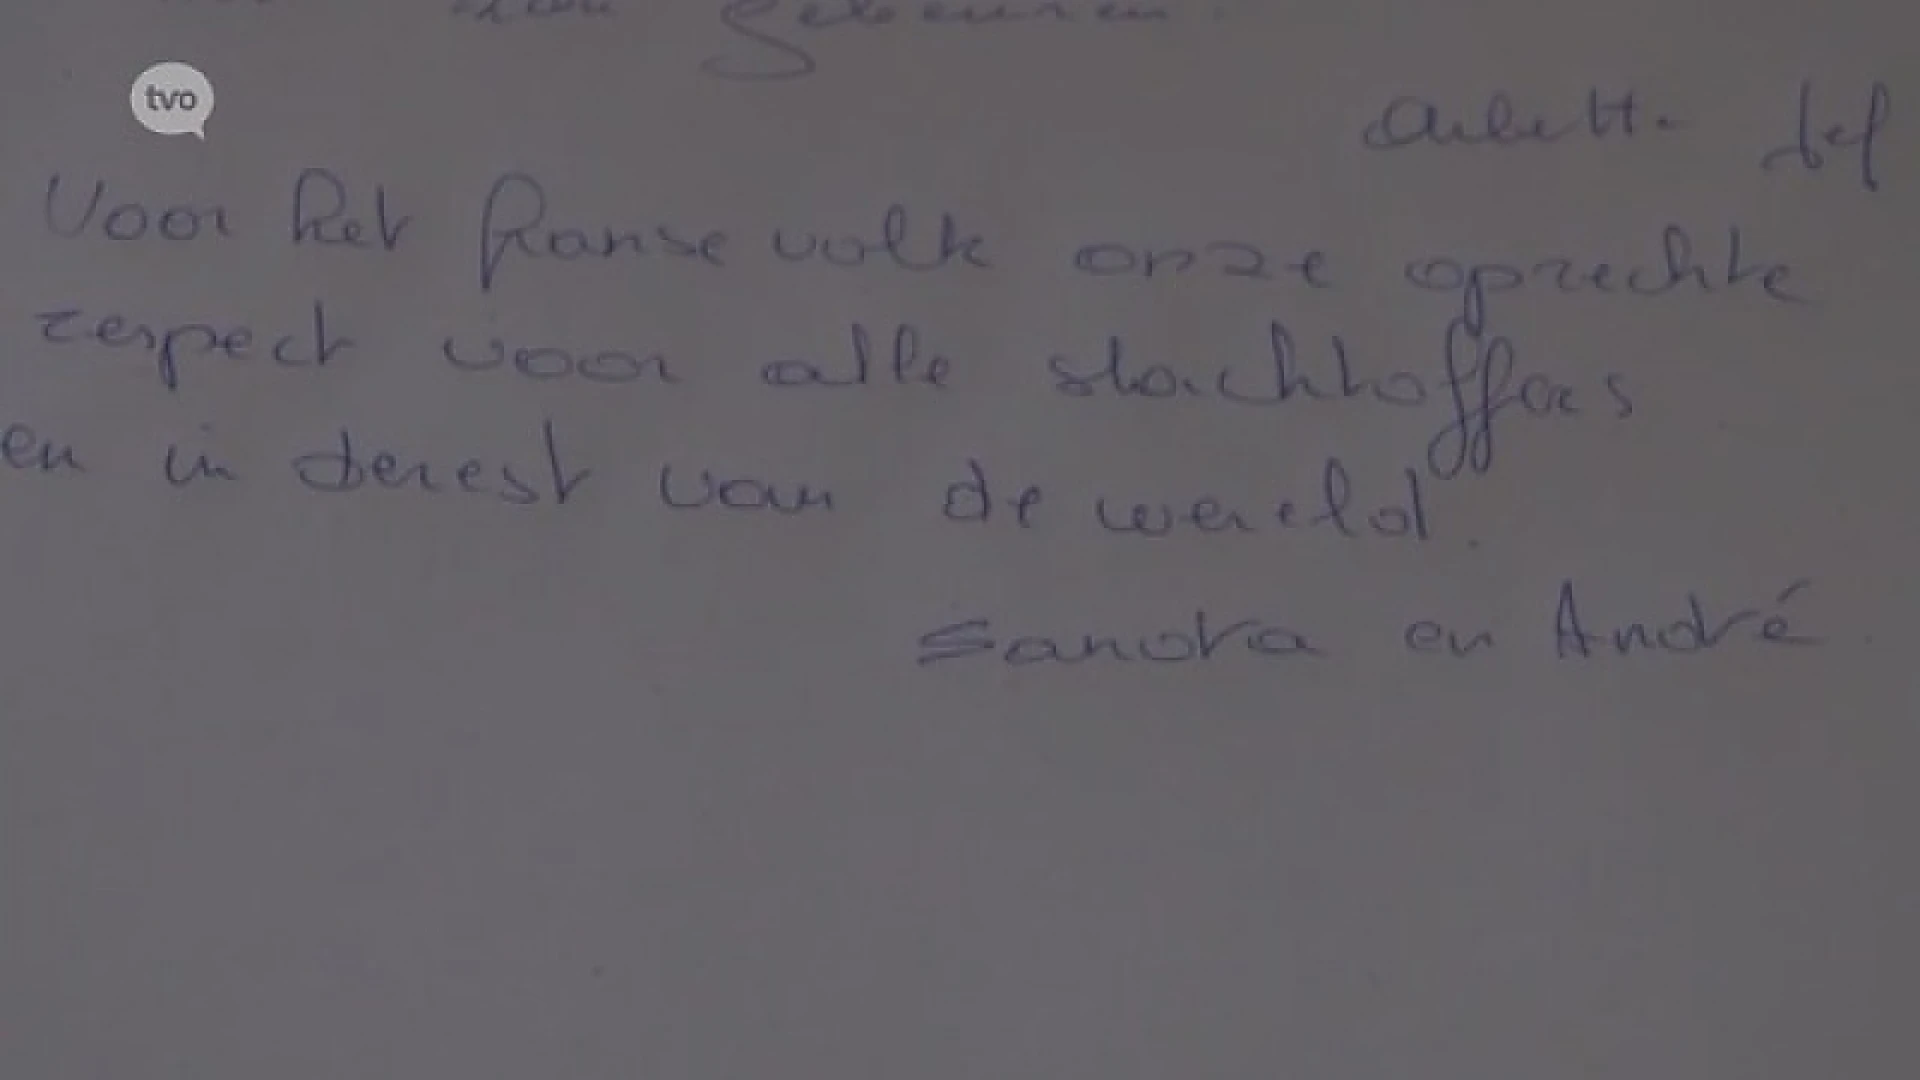 tvo
Voor het franse volk onze oprechte
respect voor alle slachtoffers
en in derest van de wereld.
Sandra en André